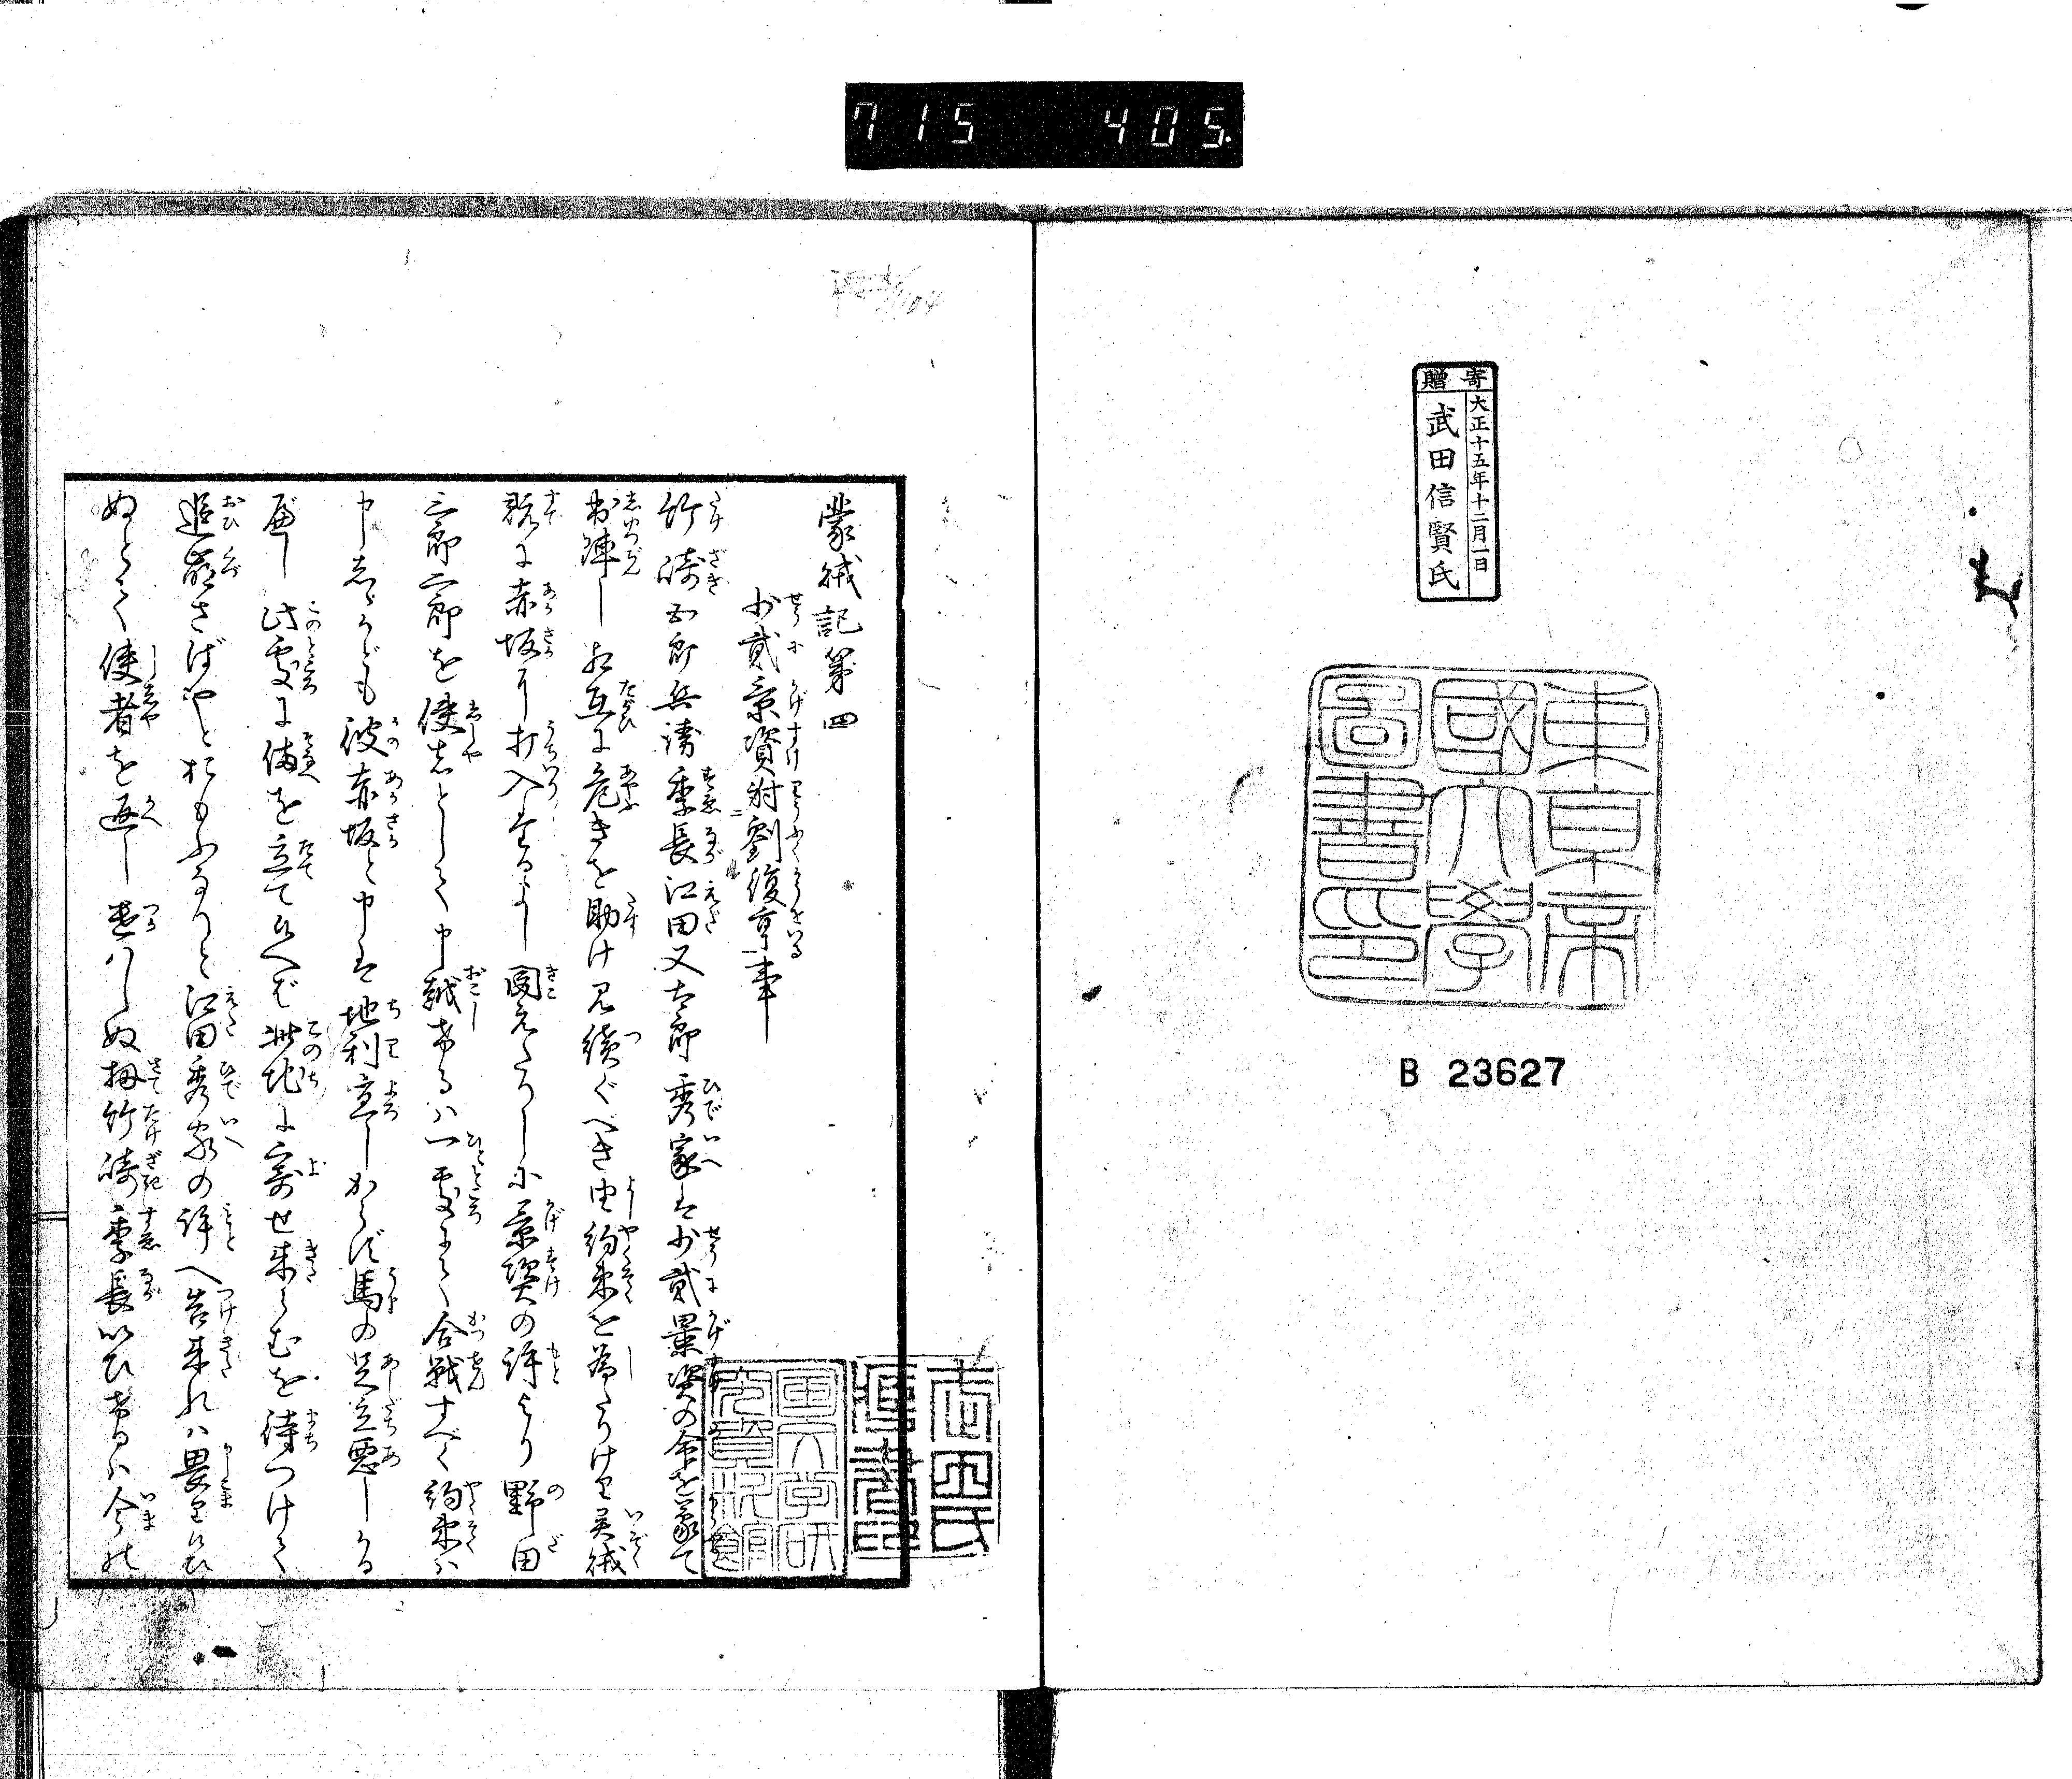 715 405.
寄贈
大正十五年十二月一日
武田信賢氏
東京帝
國大學
圖書印
B 23627
蒙賊記第四
少貳景資射劉復亨事
竹﨑五郎兵衛季長江田又太郎秀家は少貳景資の命を蒙て
出陣し相互に危きを助け見續ぐべき由約束を為たりけり異賊
既に赤坂に打入たるよし聞えたりしに景資の許より野田
三郎二郎を使者として申越けるハ一處にて合戰すべく約束ハ
申しゝかども彼赤坂と申は地利宜しからず馬の足立悪しかる
べし此處に備を立て候へば此地に寄せ来らむを待つけて
追崩さばやとおもふなりと江田秀家の許へ告来れハ畏り候ひ
ぬとて使者を返し遣ハしぬ扨竹﨑季長いひけるハ今の